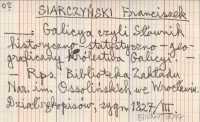 SIARCZYŃSKI Franciszek
:Galicya czyli Słownik
historyczno-statystyczno-geo-
graficzny Królestwa Galicyi.
- Rps. Biblioteka Zakładu
Nar. im. Ossolińskich we Wrocławiu,
Dział rękopisów, sygn. 1827/III